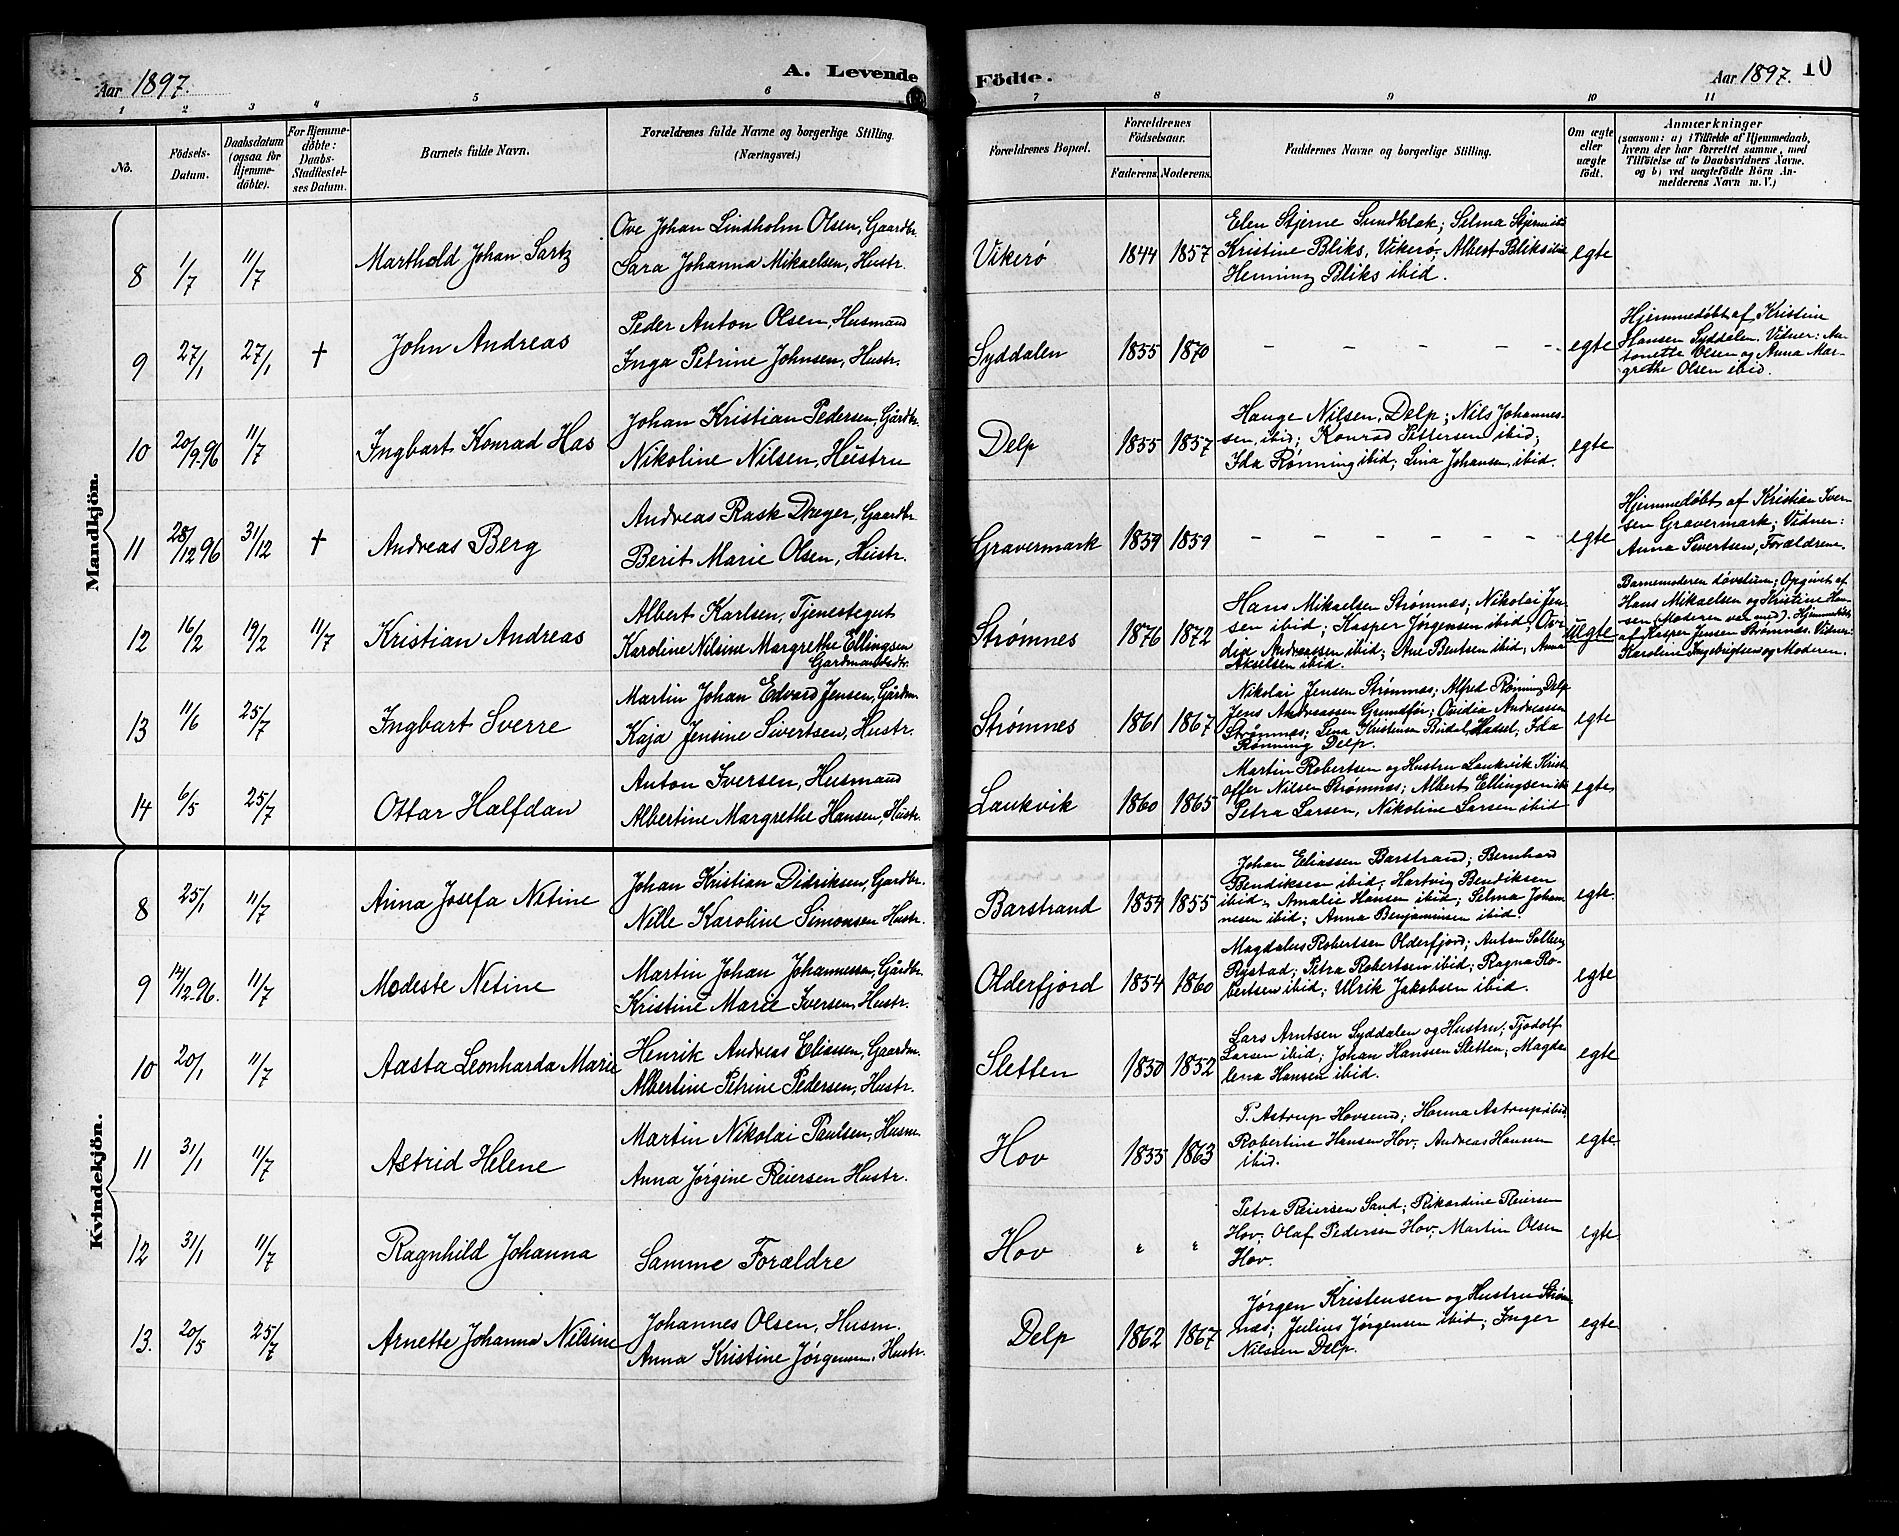 Aar 1897.
A. Levende
Födte.
Aar 1897. 10
1 2 3 4 5 6 7 8 9 10 11
No.
Födsels-
Datum.
Daabsdatum
(ogsaa for
Hjemme-
döbte).
For Hjemme-
döbte:
Daabs-
Stadfestel-
ses Datum.
Barnets fulde Navn.
Forældrenes fulde Navne og borgerlige Stilling.
(Næringsvei.)
Forældrenes Bopæl.
Forældrenes
Födselsaar.
Faderens. Moderens.
Faddernes Navne og borgerlige Stilling.
Om ægte
eller
uægte
födt.
Anmærkninger
(saasom: a) i Tilfælde af Hjemmedaab,
hvem der har forrettet samme, med
Tilföielse af to Daabsvidners Navne.
og b) ved uægtefödte Börn An-
melderens Navn m. V.)
Mandkjön.
8 1/7 11/7 Marthold Johan Sartz
Ove Johan Lindholm Olsen, Gaardbr.
Sara Johanna Mikaelsen, Hustr.
Vikerø 1844 1857
Elen Stjerne Sundklak; Selma Stjerne ibid
Kristine Bliks, Vikerø; Albert Bliks ibid
Henning Bliks ibid.
egte
9 27/1 27/1 † John Andreas
Peder Anton Olsen, Husmand
Inga Petrine Johnsen, Hustr.
Syddalen 1855 1870 – – – – – – egte
Hjemmedøbt af Kristine
Hansen Syddalen. Vidner: An-
tonette Olsen og Anna Mar-
grethe Olsen ibid.
10 20/9-96 11/7 Ingbart Konrad Has
Johan Kristian Pedersen, Gårdbr.
Nikoline Nilsen, Hustru
Delp 1855 1857
Hauge Nilsen, Delp; Nils Johannes-
sen, ibid; Konrad Pettersen ibid;
Ida Rønning ibid; Lina Johansen, ibid.
egte
11 28/12 96 31/12 † Andreas Berg
Andreas Rask Dreyer, Gaardbr.
Berit Marie Olsen, Hustr.
Gravermark 1859 1859 – – – – – – – egte
Hjemmedøbt af Kristian Iver-
sen Gravermark; Vidner:
Anna Sivertsen, Forældrene.
12 16/2 19/2 11/7 Kristian Andreas
Albert Karlsen, Tjenestegut
Karoline Nilsine Margrethe Ellingsen
Gardmandsdtr.
Strømnes 1876 1872
Hans Mikaelsen Strømnæs; Nikolai Jen-
sen ibid; Kasper Jørgensen ibid; Ovi-
dia Andreassen ibid; Ane Bentsen ibid; Anna
Akselsen ibid.
Uegte
Barnemoderen døvstum; Opgivet af
Hans Mikaelsen og Kristine Han-
sen (Moderen var med). Hjemmedøbt
af Kasper Jensen Strømnæs. Vidner:
Karoline Ingebrigtsen og Moderen.
13 11/6 25/7 Ingbart Sverre
Martin Johan Edvard Jensen, Gårdm.
Kaja Jensine Sivertsen, Hustr.
Strømnes 1861 1867
Nikolai Jensen Strømnæs; Alfred Rønning Delp
Jens Andreassen Grundfør; Ovidia Andreassen
Strømnæs; Lena Kristensen Hadsel, Ida
Rønning Delp.
egte
14 6/5 25/7 Ottar Halfdan
Anton Iversen, Husmand
Albertine Margrethe Hansen, Hustr.
Laukvik 1860 1865
Martin Robertsen og Hustru Laukvik Krist-
offer Nilsen Strømnæs; Albert Ellingsen ibid
Petra Larsen, Nikoline Larsen ibid
egte
Kvindekjön.
8 25/1 11/7 Anna Josefa Netine
Johan Kristian Didriksen, Gardbr.
Nille Karoline Simonsen Hustr.
Barstrand 1854 1855
Johan Eliassen Barstrand; Bernhard
Bendiksen ibid; Hartvig Bendiksen
ibid; Amalie Hansen ibid; Selma Johan-
nesen ibid; Anna Benjaminsen ibid.
egte.
9 14/12-96. 11/7 Modeste Netine
Martin Johan Johannessen, Gårdbr.
Kristine Marie Iversen, Hustr.
Olderfjord 1854 1860
Magdalus Robertsen Olderfjord; Anton Solberg
Rystad; Petra Robertsen ibid; Ragna Ro-
bertsen ibid; Ulrik Jakobsen ibid.
egte
10 20/1 11/7 Aasta Leonharda Marie
Henrik Andreas Eliassen, Gaardm.
Albertine Petrine Pedersen, Hustr.
Sletten 1850 1852
Lars Arntsen Syddalen og Hustru, Tjodolf
Larsen ibid; Johan Hansen Sletten; Magda-
lena Hansen ibid.
egte
11 31/1 11/7 Astrid Helene
Martin Nikolai Paulsen, Husm.
Anna Jørgine Reiersen Hustr.
Hov 1855 1863
P. Astrup Hovsund; Hanna Astrup ibid
Robertine Hansen Hov; Andreas Hansen
ibid.
egte
12 31/1 11/7 Ragnhild Johanna
Samme Forældre
Hov " "
Petra Reiersen Sand; Rikardine Reiersen
Hov; Olaf Pedersen Hov; Martin Olsen
Hov.
egte
13. 20/5 25/7 Arnette Johanna Nilsine
Johannes Olsen, Husm.
Anna Kristine Jørgensen, Hustr.
Delp 1862 1867
Jørgen Kristensen og Hustru Strøm-
næs; Julius Jørgensen ibid; Inger
Nilssen Delp.
egte